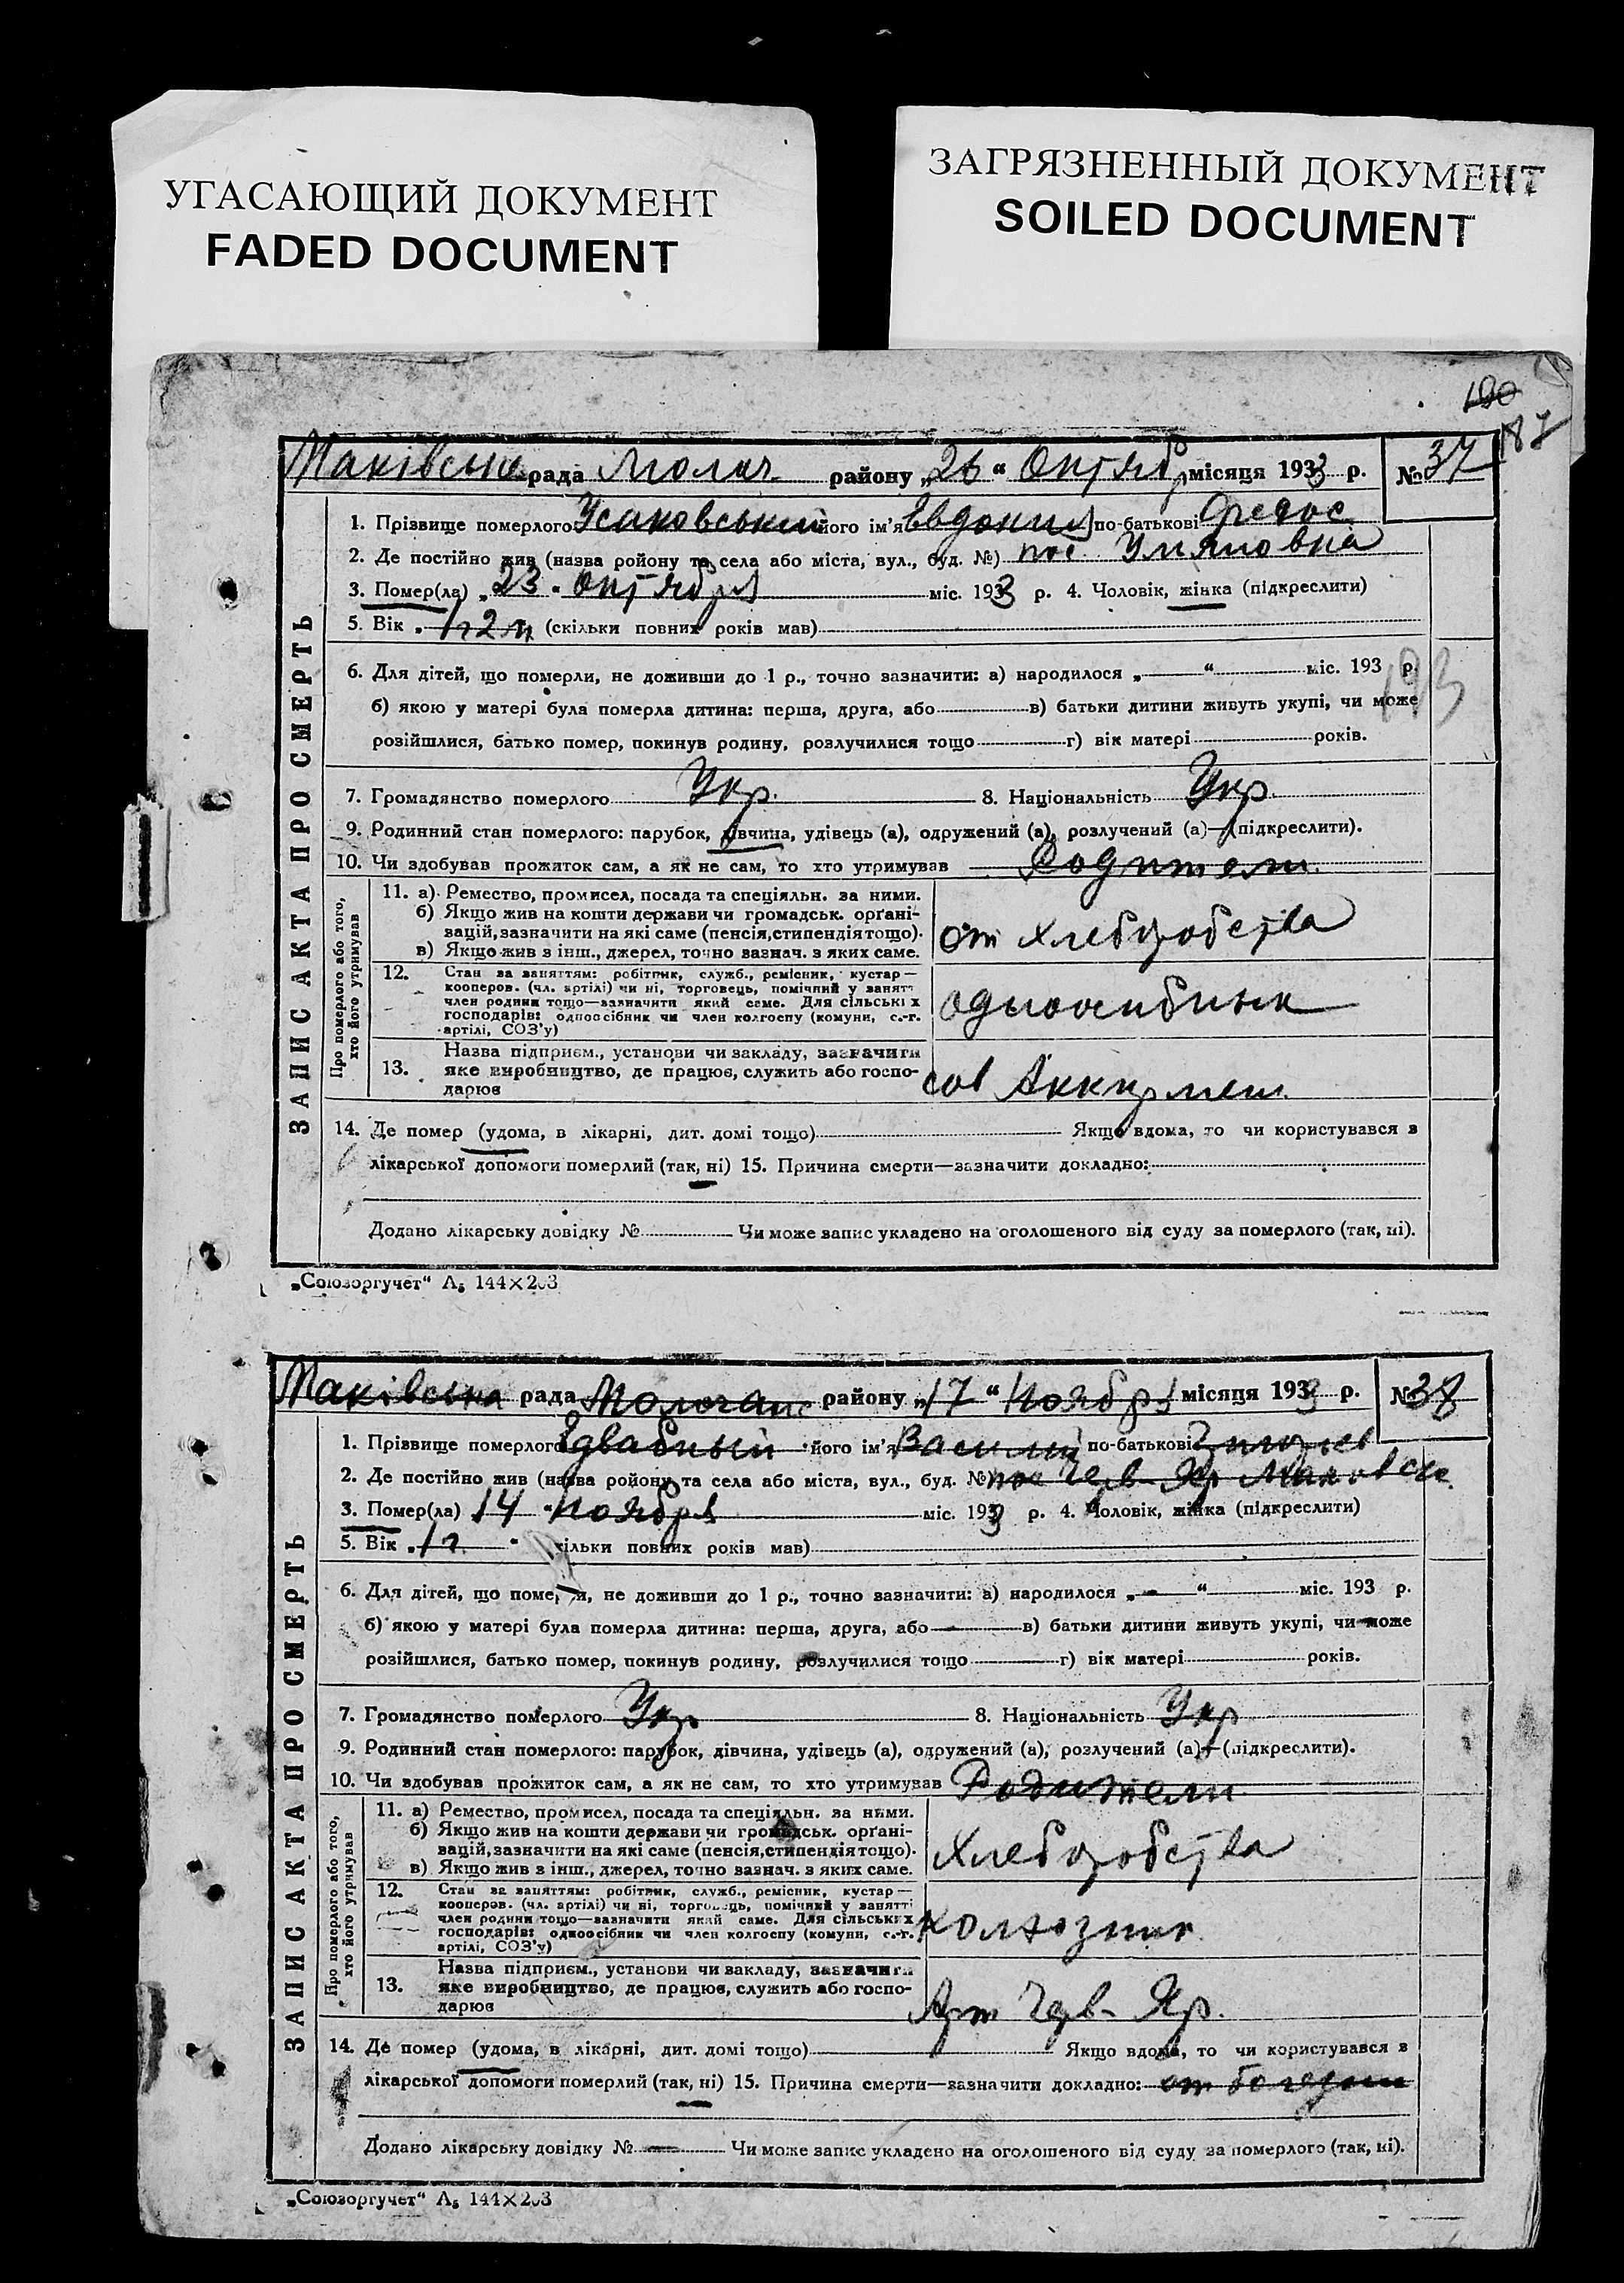 УГАСАЮЩИЙ ДОКУМЕНТ
FADED DOCUMENT
ЗАГРЯЗНЕННЫЙ ДОКУМЕНТ
SOILED DOCUMENT
190
187
Маківська рада Молоч. району „26“ Октября місяця 1933 р. № 37
ЗАПИС АКТА ПРО СМЕРТЬ
1. Прізвище померлого Усаковський його ім'я Евдокия по-батькові Федос
2. Де постійно жив (назва ройону та села або міста, вул., буд. №) пос
3. Помер(ла) „23“ октября міс. 1933 р. 4. Чоловік, жінка (підкреслити)
5. Вік „1 г 2 м (скільки повних років мав)
6. Для дітей, що померли, не доживши до 1 р., точно зазначити: а) народилося „ “ міс. 193 р.
193
б) якою у матері була померла дитина: перша, друга, або в) батьки дитини живуть укупі, чи може
розійшлися, батько помер, покинув родину, розлучилися тощо г) вік матері років.
7. Громадянство померлого Укр. 8. Національність Укр
9. Родинний стан померлого: парубок, дівчина, удівець (а), одружений (а), розлучений (а)—(підкреслити).
10. Чи здобував прожиток сам, а як не сам, то хто утримував Родители
Про померлого або того, хто його утримував
11. а) Ремество, промисел, посада та спеціяльн. за ними.
б) Якщо жив на кошти держави чи громадськ. орґані-
зацій, зазначити на які саме (пенсія, стипендія тощо).
в) Якщо жив з інш., джерел, точно зазнач. з яких саме.
от хлеборобства
12. Стан за заняттям: робітник, служб., ремісник, кустар—
кооперов. (чл. артілі) чи ні, торговець, помічний у занятт
член родини тощо—зазначити який саме. Для сільських
господарів: одноосібник чи член колгоспу (комуни, с.-г.
артілі, СОЗ'у)
одноосибник
13. Назва підприєм., установи чи закладу, зазначити
яке виробництво, де працює, служить або госпо-
дарює
сов Аккермен.
14. Де помер (удома, в лікарні, дит. домі тощо) Якщо вдома, то чи користувався з
лікарської допомоги померлий (так, ні) 15. Причина смерти—зазначити докладно:
Додано лікарську довідку № Чи може запис укладено на оголошеного від суду за померлого (так, ні).
„Союзоргучет“ А5 144×203
Маківська рада Молочанс району „17“ Ноября місяця 1933 р. № 38
ЗАПИС АКТА ПРО СМЕРТЬ
1. Прізвище померлого його ім'я Василий по-батькові
2. Де постійно жив (назва ройону та села або міста, вул., буд. №) пос Черв. Яр Маковск.
3. Помер(ла) 14 “ Ноября міс. 1933 р. 4. Чоловік, жінка (підкреслити)
5. Вік „1 г. “ (скільки повних років мав)
6. Для дітей, що померли, не доживши до 1 р., точно зазначити: а) народилося „ — “ міс. 193 р.
б) якою у матері була померла дитина: перша, друга, або — в) батьки дитини живуть укупі, чи може
розійшлися, батько помер, покинув родину, розлучилися тощо г) вік матері років.
7. Громадянство померлого Укр 8. Національність Укр
9. Родинний стан померлого: парубок, дівчина, удівець (а), одружений (а), розлучений (а)—(підкреслити).
10. Чи здобував прожиток сам, а як не сам, то хто утримував Родители
Про померлого або того, хто його утримував
11. а) Ремество, промисел, посада та спеціяльн. за ними.
б) Якщо жив на кошти держави чи громадськ. орґані-
зацій, зазначити на які саме (пенсія, стипендія тощо).
в) Якщо жив з інш., джерел, точно зазнач. з яких саме.
хлеборобства
12. Стан за заняттям: робітник, служб., ремісник, кустар—
кооперов. (чл. артілі) чи ні, торговець, помічний у занятті
член родини тощо—зазначити який саме. Для сільських
господарів: одноосібник чи член колгоспу (комуни, с.-г.
артілі, СОЗ'у)
колхозник
13. Назва підприєм., установи чи закладу, зазначити
яке виробництво, де працює, служить або госпо-
дарює
Арт Черв. Яр.
14. Де помер (удома, в лікарні, дит. домі тощо) Якщо вдома, то чи користувався з
лікарської допомоги померлий (так, ні) 15. Причина смерти—зазначити докладно: от
Додано лікарську довідку № — Чи може запис укладено на оголошеного від суду за померлого (так, ні).
„Союзоргучет“ А5 144×203